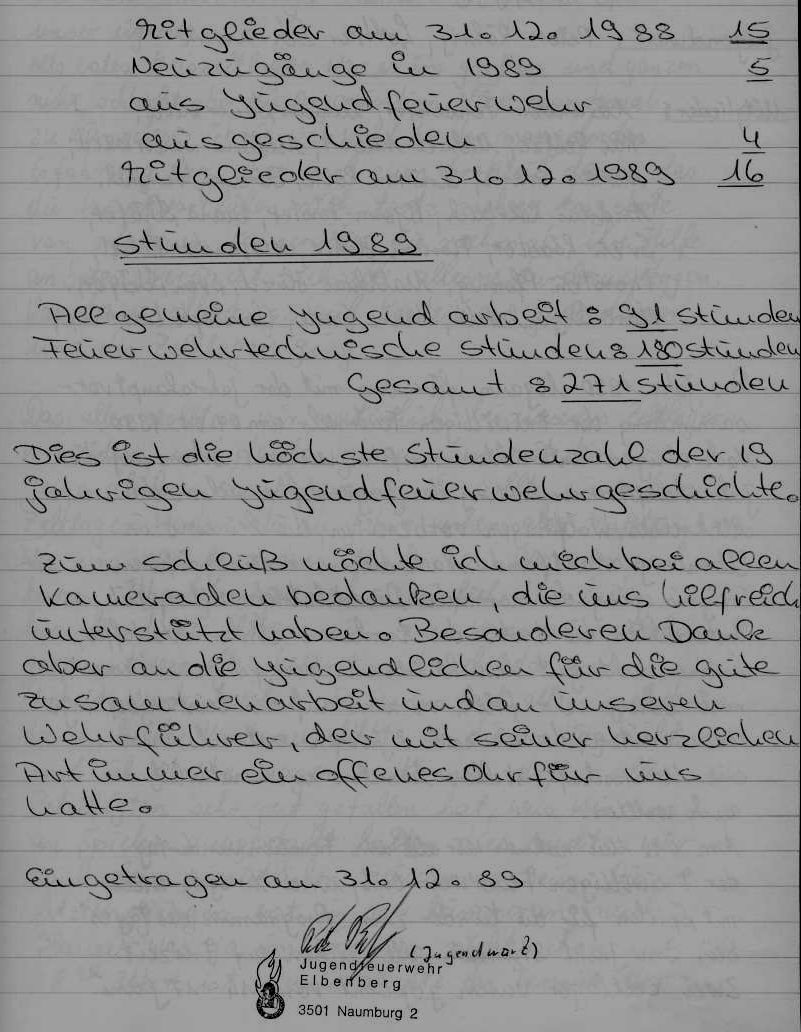 Mitglieder am 31.12.1988 15
Neuzugänge in 1989 5
aus Jugendfeuerwehr
ausgeschieden 4
Mitglieder am 31.12.1989 16
Stunden 1989
Allgemeine Jugendarbeit: 91 Stunden
Feuerwehrtechnische Stunden: 180 Stunden
Gesamt: 271 Stunden
Dies ist die höchste Stundenzahl der 19
jahrigen Jugendfeuerwehrgeschichte.
Zum Schluß möchte ich mich bei allen
Kameraden bedanken, die uns hilfreich
unterstützt haben. Besonderen Dank
aber an die Jugendlichen für die gute
Zusammenarbeit und an unseren
Wehrführer, der mit seiner herzlichen
Art immer ein offenes Ohr für uns
hatte.
Eingetragen am 31.12.89
(Jugendwart)
Jugendfeuerwehr
Elbenberg
3501 Naumburg 2